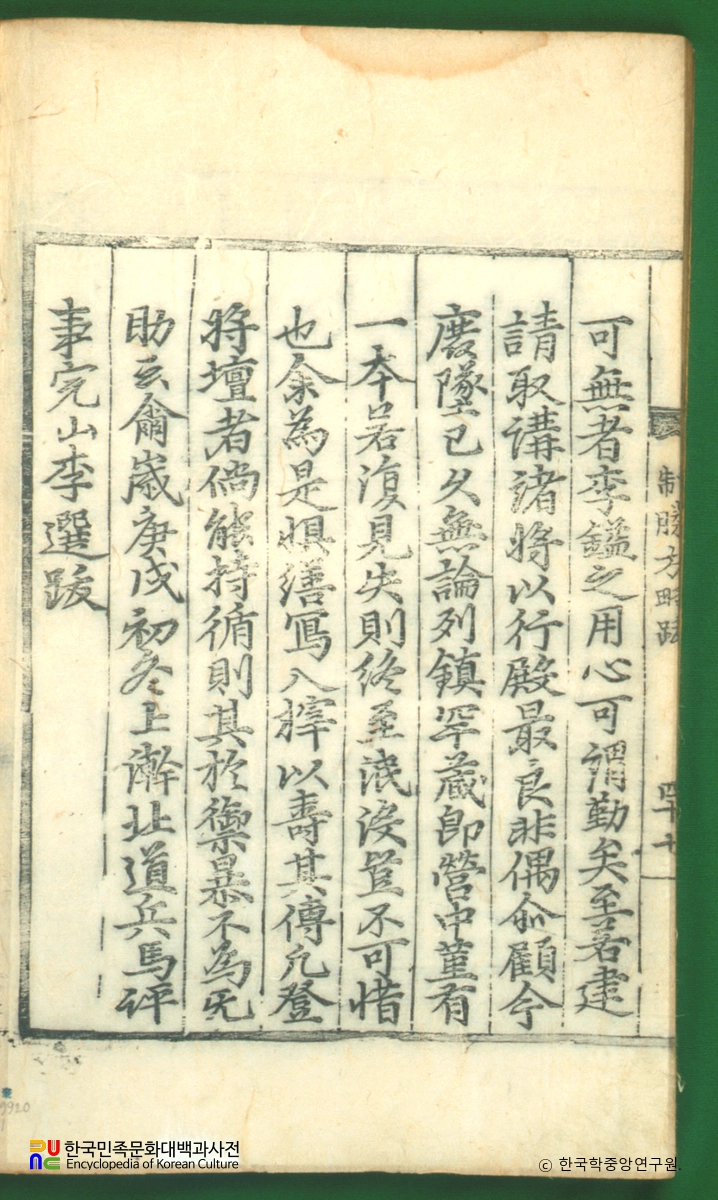 可無者李鎰之用心可謂勤矣至若建
請取講諸將以行殿最良非偶尒顧今
廢墜已久無論列鎮罕蔵即營中菫有
一本若復見失則終至泯沒豈不可惜
也余為是惧繕寫入梓以壽其傳凢登
將壇者倘能持循則其於禦暴不為无
助云爾歲庚戌初冬上澣北道兵馬評
事完山李選跋
制勝方略跋
四十七
한국민족문화대백과사전
Encyclopedia of Korean Culture
© 한국학중앙연구원.